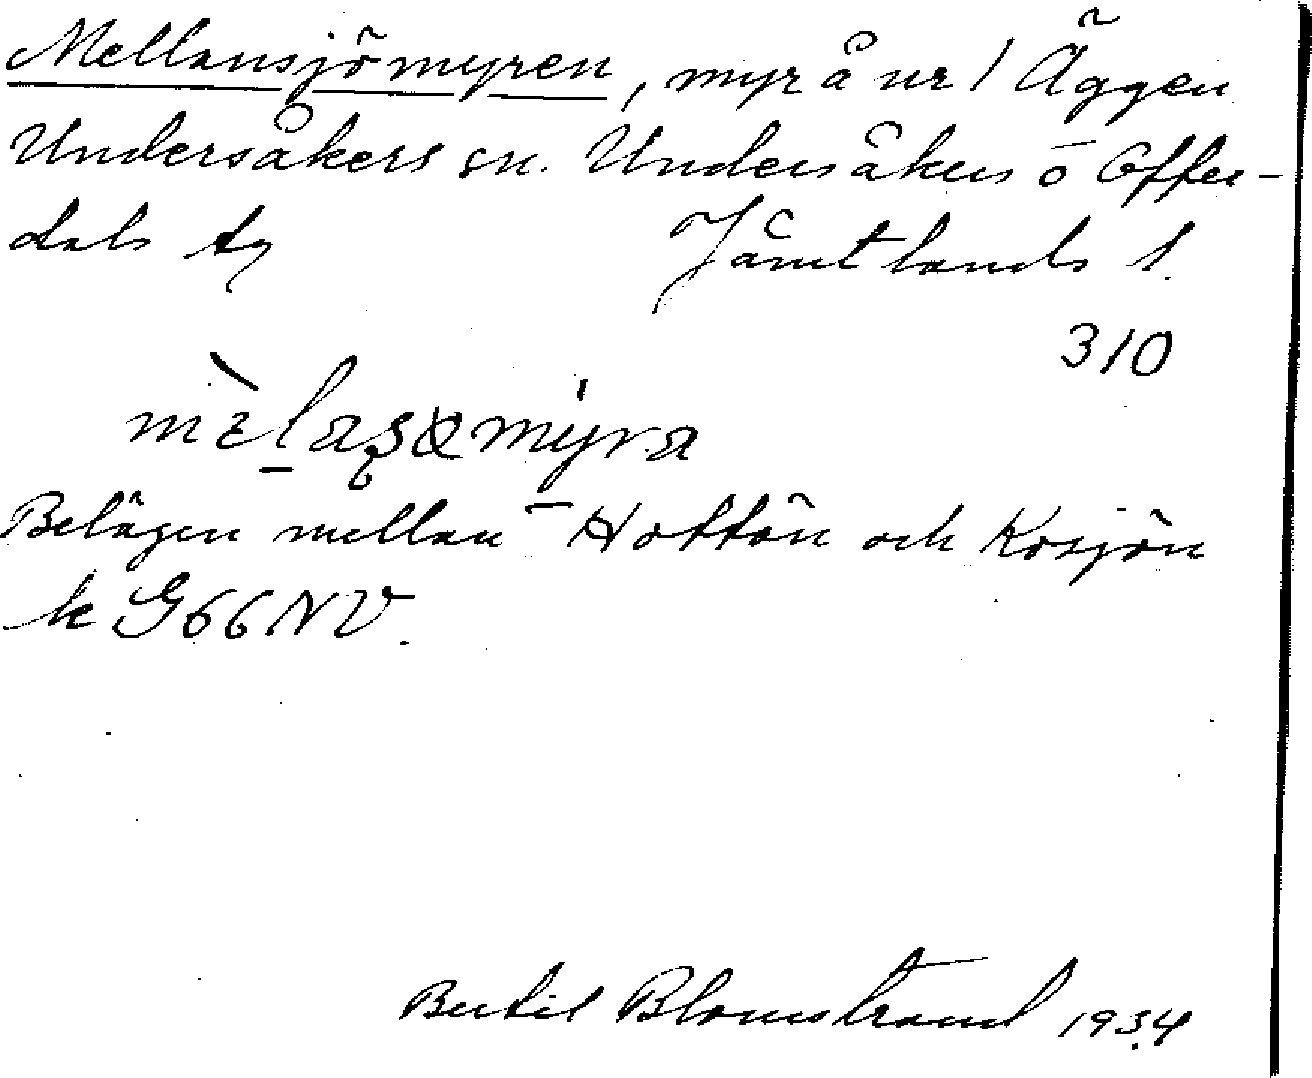 Mellansjömyren, myr å nr 1 Äggen
Undersåkers sn. Undersåkers o Offer-
dals tg Jämtlands l.
310
Belägen mellan Hottön och Kösjön
k G66NV.
Bertil Blomstrand 1934